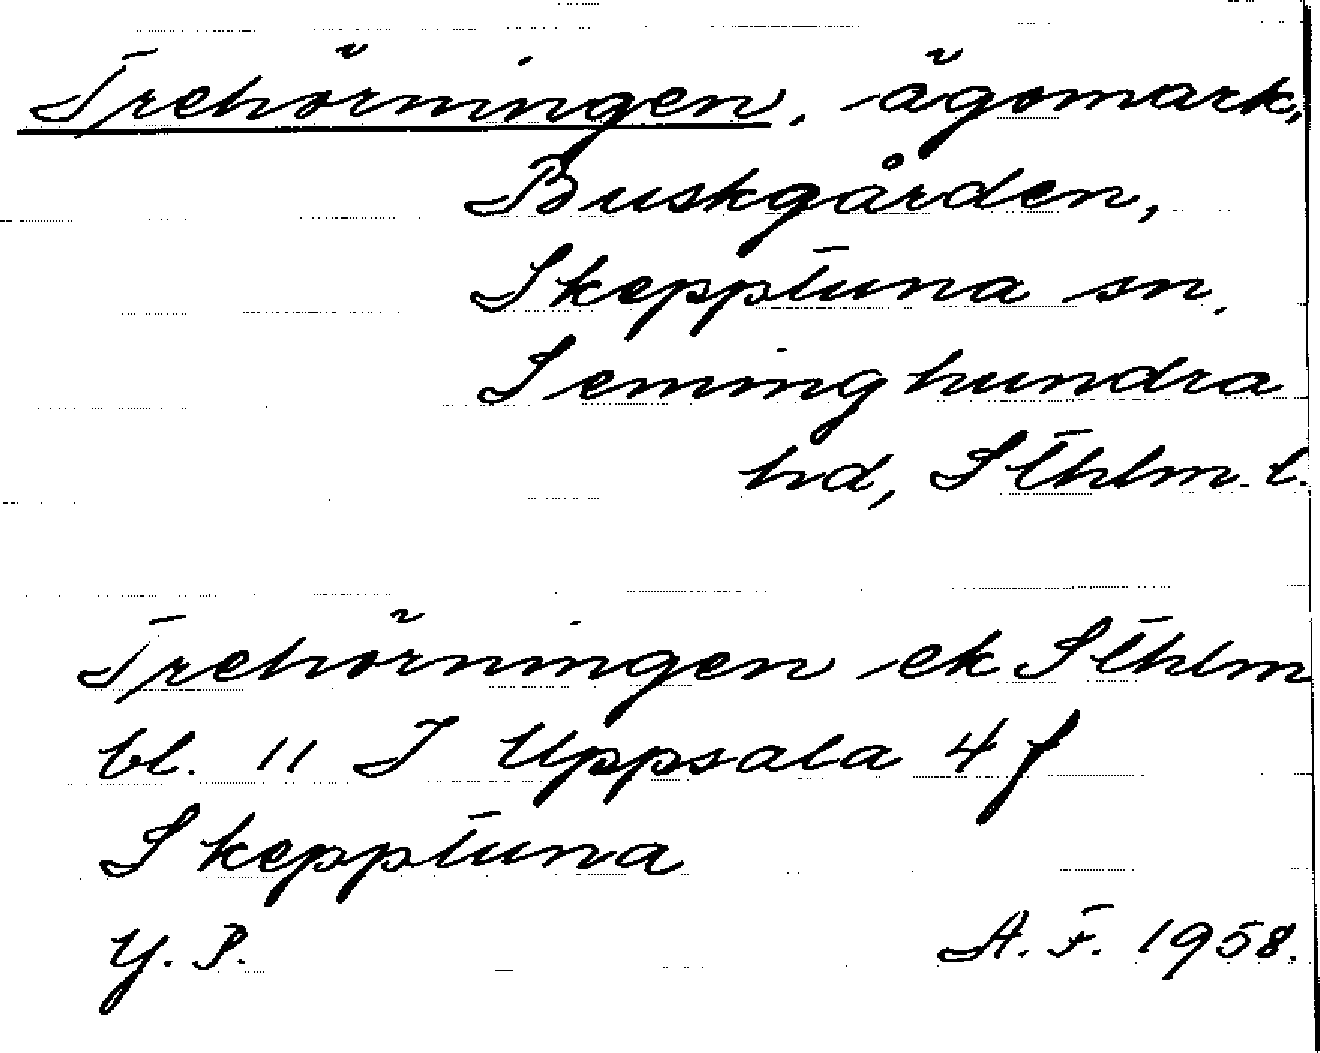 Trehörningen, ägomark,
Buskgården,
Skepptuna sn.
Seminghundra
hd, Sthlm. l.
Trehörningen ek Sthlm
bl. 11 I Uppsala 4 f
Skepptuna
Y. P. A. F. 1958.